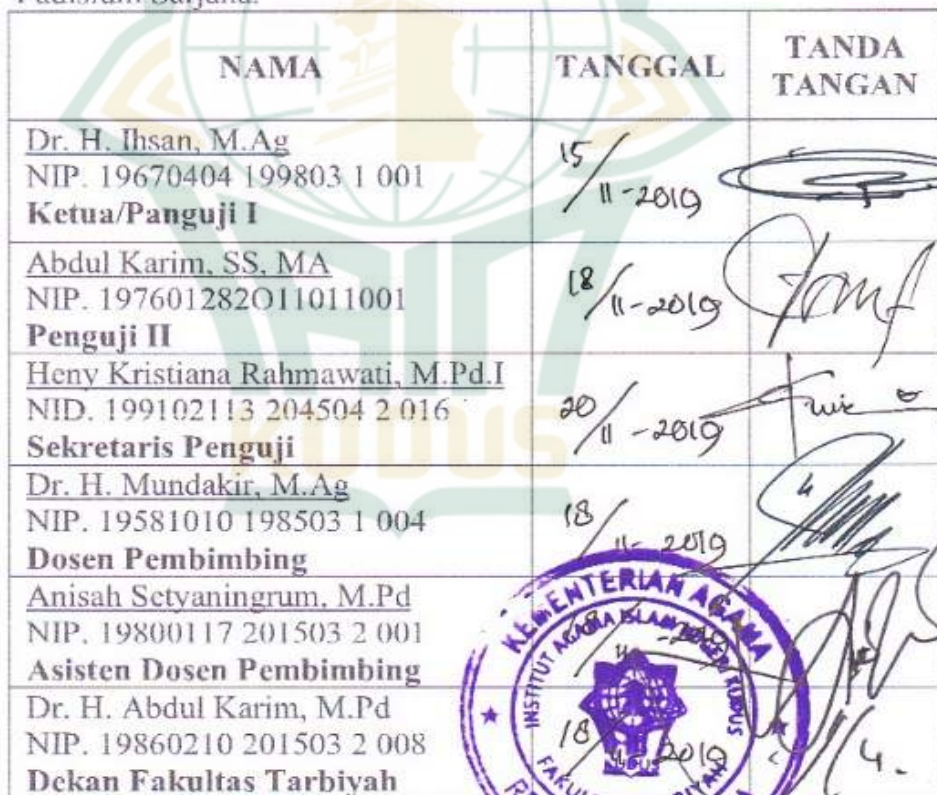 NAMA TANGGAL TANDA TANGAN
Dr. H. Ihsan, M.Ag
NIP. 19670404 199803 1 001
Ketua/Panguji I
15/11-2019
Abdul Karim, SS, MA
NIP. 197601282O11011001
Penguji II
18/11-2019
Heny Kristiana Rahmawati, M.Pd.I
NID. 199102113 204504 2 016
Sekretaris Penguji
20/11-2019
Dr. H. Mundakir, M.Ag
NIP. 19581010 198503 1 004
Dosen Pembimbing
18/11-2019
Anisah Setyaningrum, M.Pd
NIP. 19800117 201503 2 001
Asisten Dosen Pembimbing
Dr. H. Abdul Karim, M.Pd
NIP. 19860210 201503 2 008
Dekan Fakultas Tarbiyah
18/11-2019
KEMENTERIAN AGAMA
INSTITUT AGAMA ISLAM NEGERI KUDUS
KUDUS